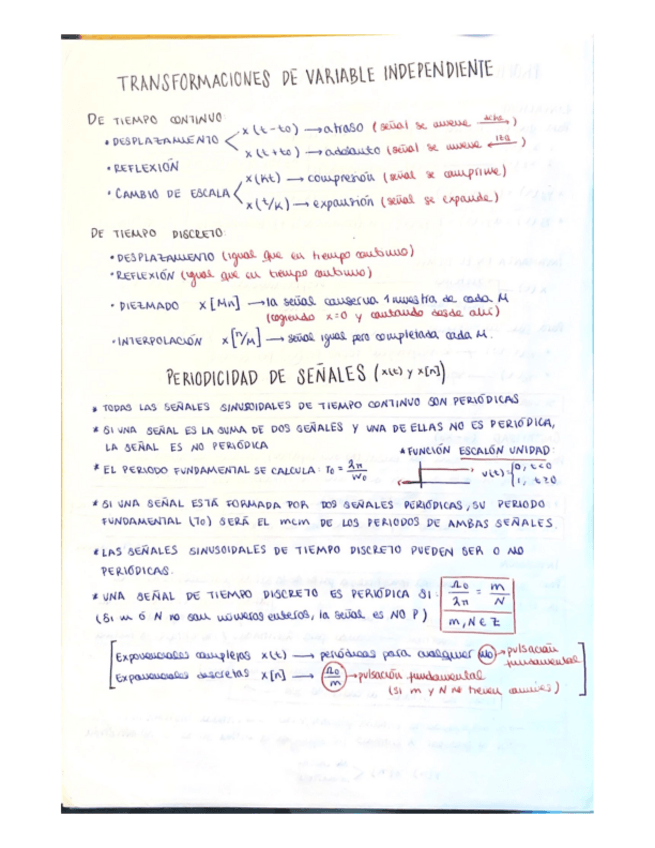 TRANSFORMACIONES DE VARIABLE INDEPENDIENTE
DE TIEMPO CONTINUO:
• DESPLAZAMIENTO
x(t-to) → atraso (señal se mueve dcha →)
x(t+to) → adelanto (señal se mueve izq ←)
• REFLEXIÓN
• CAMBIO DE ESCALA
x(kt) → compresión (señal se comprime)
x(t/k) → expansión (señal se expande)
DE TIEMPO DISCRETO:
• DESPLAZAMIENTO (igual que en tiempo continuo)
• REFLEXIÓN (igual que en tiempo continuo)
• DIEZMADO x[Mn] → la señal conserva 1 muestra de cada M
(cogiendo x=0 y contando desde ahí)
• INTERPOLACIÓN x[n/M] → señal igual pero completada cada M.
PERIODICIDAD DE SEÑALES (x(t) y x[n])
* TODAS LAS SEÑALES SINUSOIDALES DE TIEMPO CONTINUO SON PERIÓDICAS
* SI UNA SEÑAL ES LA SUMA DE DOS SEÑALES Y UNA DE ELLAS NO ES PERIÓDICA,
LA SEÑAL ES NO PERIÓDICA
* FUNCIÓN ESCALÓN UNIDAD:
* EL PERIODO FUNDAMENTAL SE CALCULA: To = 2π/Wo
u(t) = {0, t<0
1, t≥0
* SI UNA SEÑAL ESTÁ FORMADA POR DOS SEÑALES PERIÓDICAS, SU PERIODO
FUNDAMENTAL (To) SERÁ EL mcm DE LOS PERIODOS DE AMBAS SEÑALES
* LAS SEÑALES SINUSOIDALES DE TIEMPO DISCRETO PUEDEN SER O NO
PERIÓDICAS.
* UNA SEÑAL DE TIEMPO DISCRETO ES PERIÓDICA SI: Ωo/2π = m/N
(Si m ó N no son números enteros, la señal es NO P) m, N ∈ Z
Exponenciales complejas x(t) → periódicas para cualquier ωo → pulsación fundamental
Exponenciales discretas x[n] → Ωo/m → pulsación fundamental
(si m y N no tienen comunes)